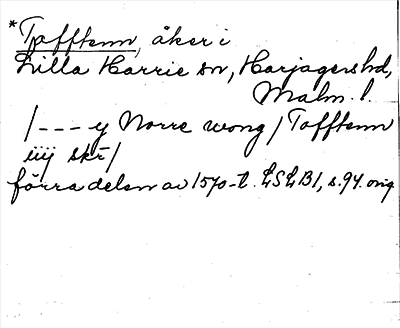 *Tofftenn, åker i
Lilla Harrie sn, Harjagers hd,
Malm. l.
/--- y Norre wong / Tofftenn
iiij skr/
förra delen av 1570-t. LSLB1, s. 94. orig.